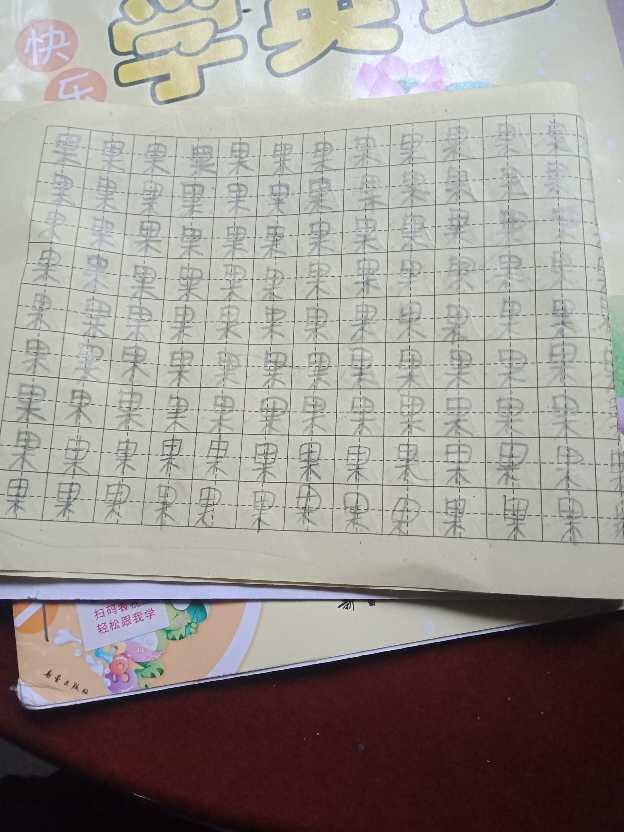 快乐
学英语
果果果果果果果果果果果果
果果果果果果果果果果果果
果果果果果果果果果果果果
果果果果果果果果果果果果
果果果果果果果果果果果果
果果果果果果果果果果果果
果果果果果果果果果果果果
果果果果果果果果果果果果
果果果果果果果果果果果果
轻松跟我学